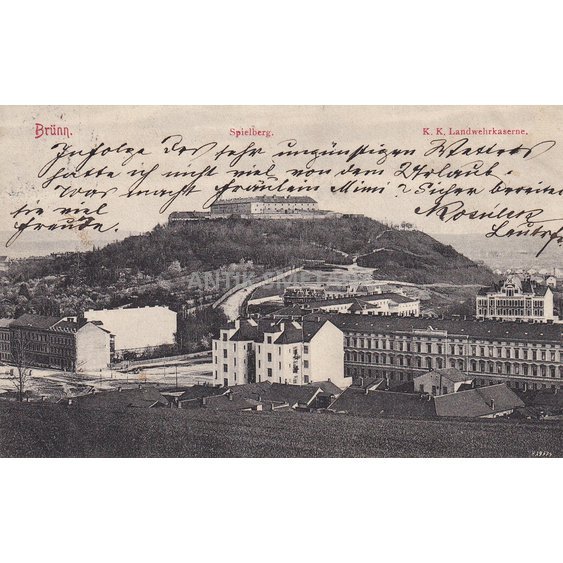 Brünn.
Spielberg.
K. K. Landwehrkaserne.
Infolge des sehr ungünstigen Wetters
hatte ich nicht viel von dem Urlaub.
Was macht Fräulein Mimi? Sicher bereitet
sie viel
Freude.
ANTIK